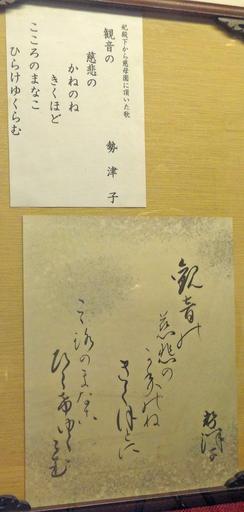 妃殿下から慈母園に頂いた歌
勢津子
観音の
慈悲の
かねのね
きくほど
こころのまなこ
ひらけゆくらむ
勢津子
観音の
慈悲の
かねのね
きくほとに
こころのまなこ
ひらけゆくらむ